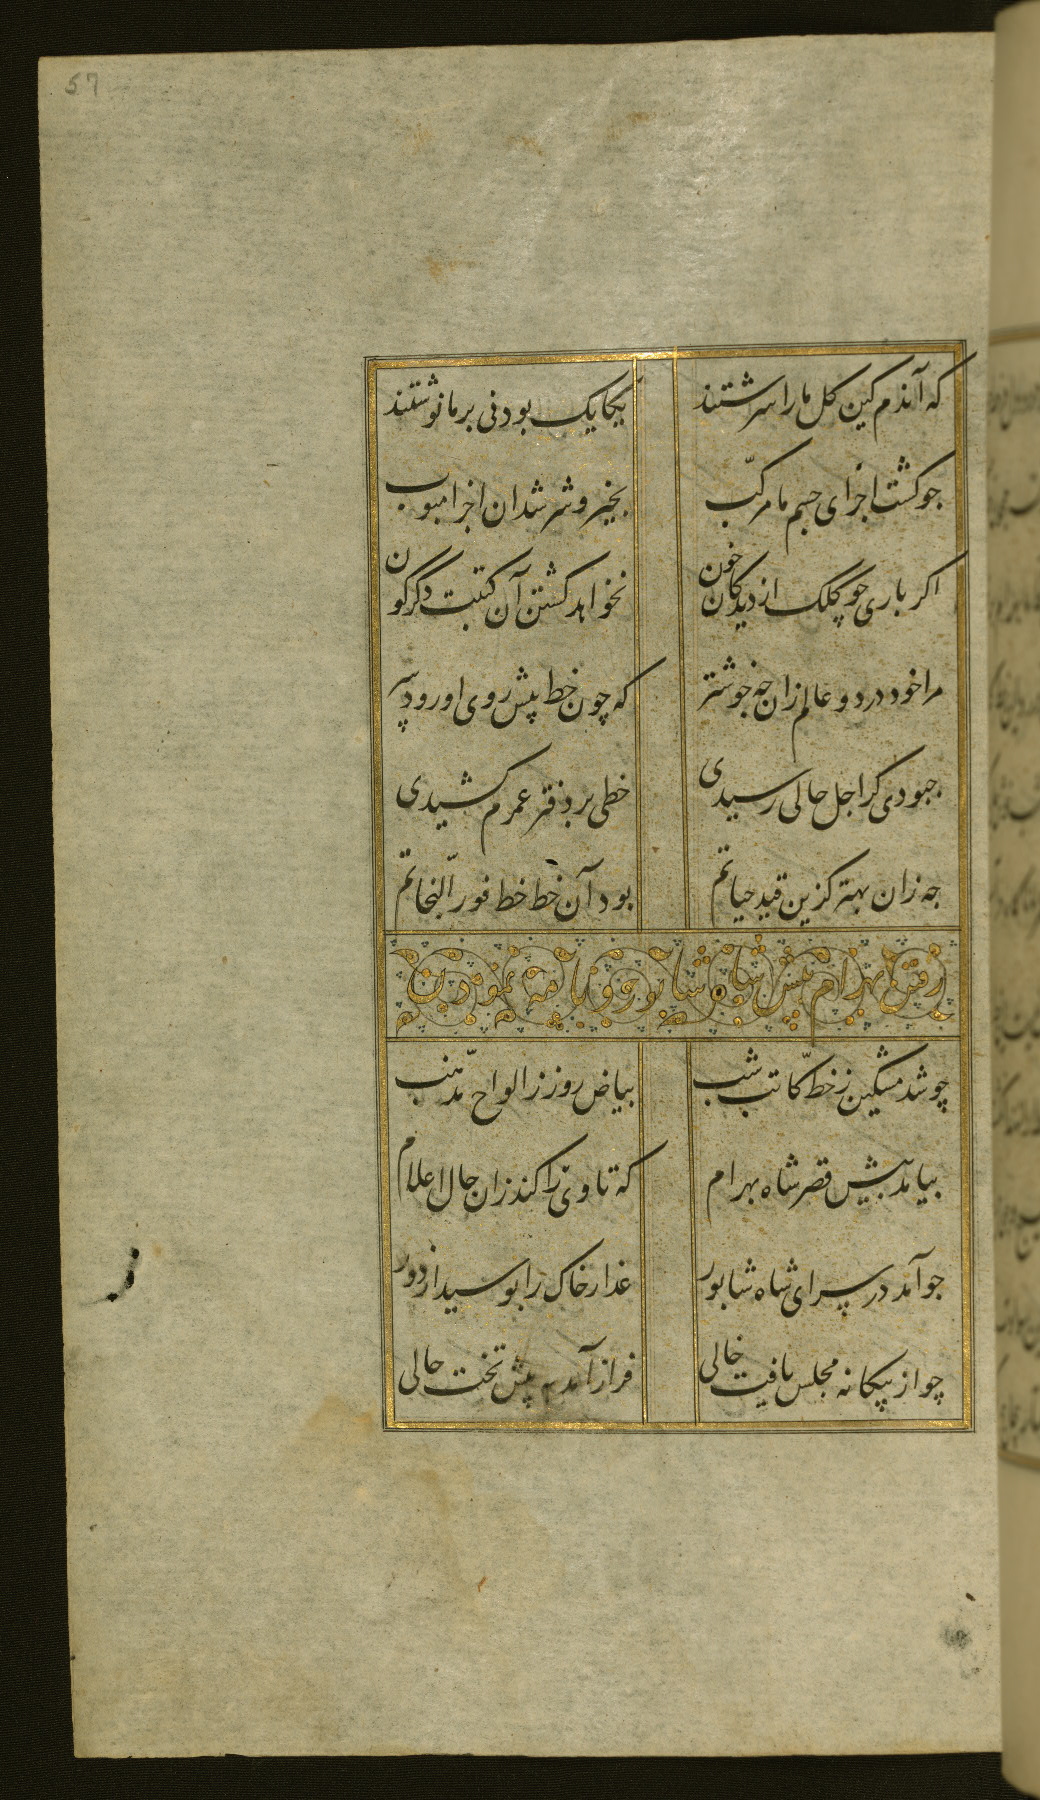 57
که آندم کین کل مارا سرشتند یکایک بودنی بر ما نوشتند
جو کشت اجزای جسم ما مرکّب بخیر و شر شدان اجزا مبوب
اکر باری جو کلک از دیدکان خون نخواهد کشتن آن کتبت دکرکون
مرا خود در دو عالم زان جه خوشتر که چون خط پیش روی او رود سر
جبودی کر اجل حالی رسیدی خطی بر دفتر عمرم کشیدی
جه زان بهتر کزین قید حیاتم بود آن خط خط فوز النجاتم
رفتن بهرام پیش شاه شابور و نامه نمودن
چو شد مشکین ز خط کاتب شب بیاض روز ز الواح مذهّب
بیامد پیش قصر شاه بهرام که تا وی را کند زان حال اعلام
جو آمد در سرای شاه شابور عذار خاک را بوسید از دور
چو از بیکانه مجلس یافت خالی فراز آمد به پیش تخت حالی